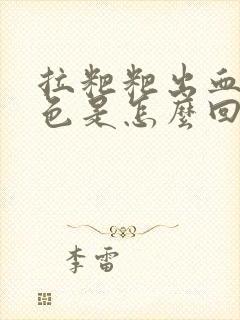 拉粑粑出血
色是怎麼回
李雷